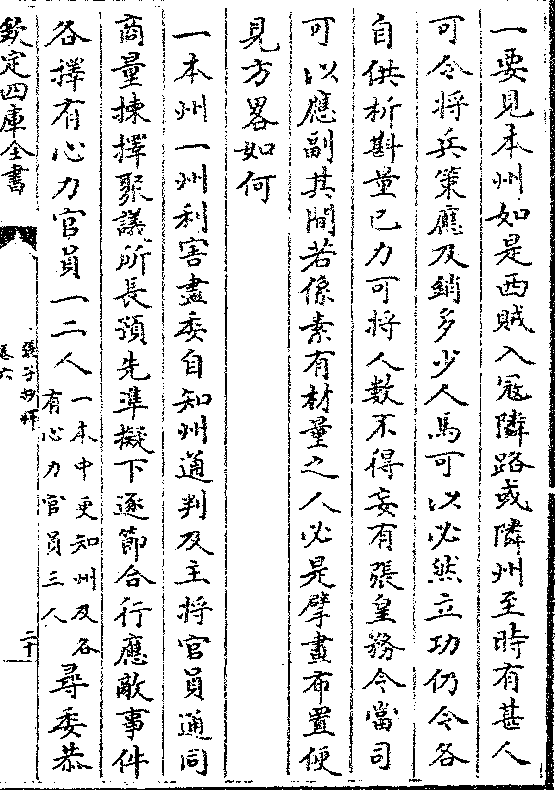 一要見本州如是西賊入冦隣路或隣州至時有甚人
可令將兵策應及銷多少人馬可以必然立功仍令各
自供析斟量已力可將人數不得妄有張皇務令當司
可以應副其間若係素有材量之人必是擘畫布置便
見方畧如何
一本州一州利害盡委自知州通判及主將官員通同
商量揀擇聚議所長預先準擬下逐節合行應敵事件
各擇有心力官員一二人一本中更知州及各有心力官員三人尋委恭
欽定四庫全書
張子抄釋
卷六
二十